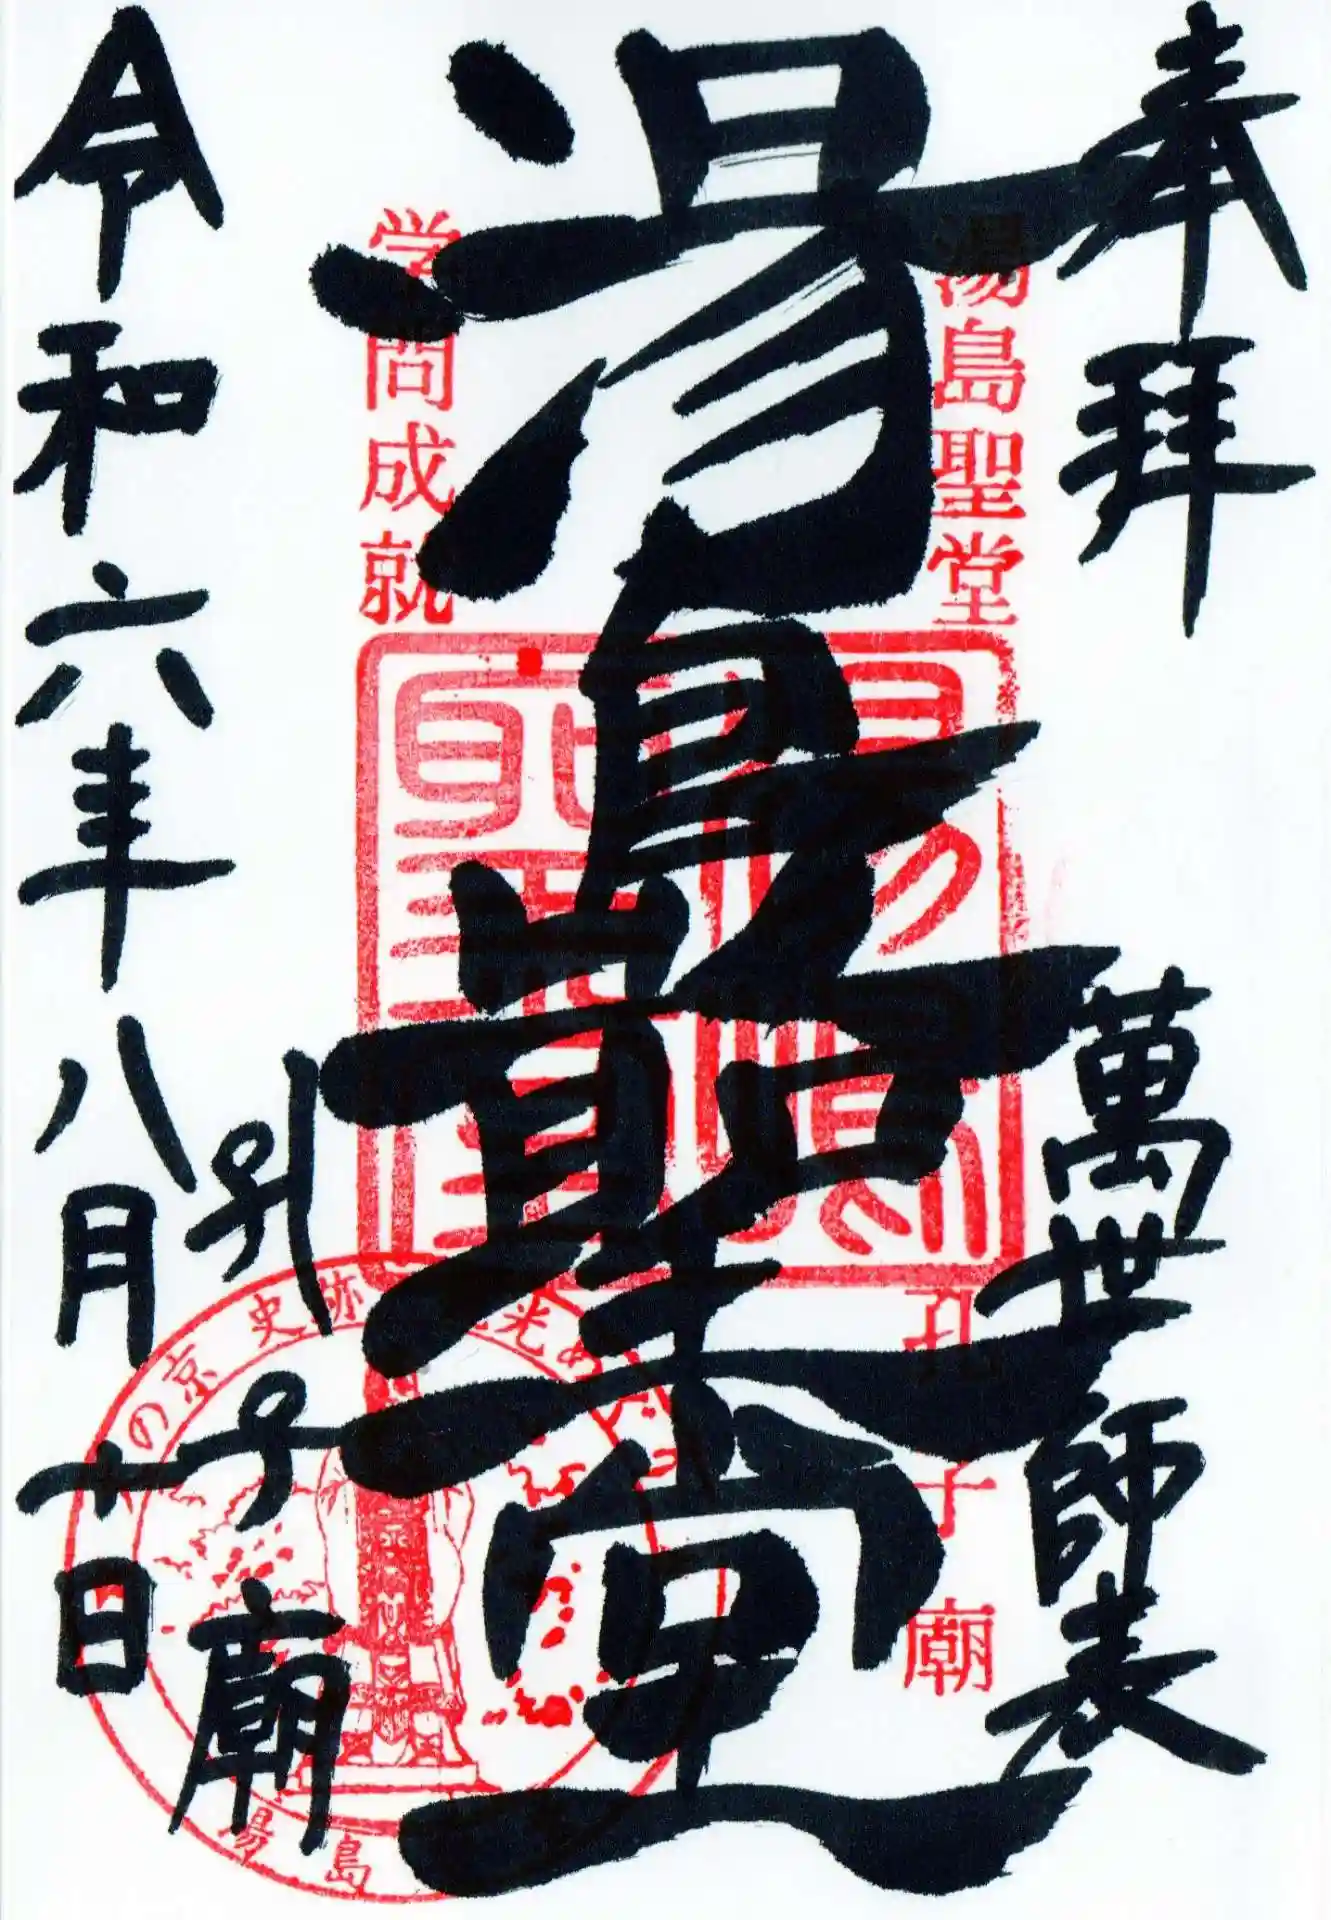 奉拝
萬世師表
湯島聖堂
孔子廟
湯島聖堂
孔子廟
学問成就
令和六年八月十日
の京 史
光め
湯島